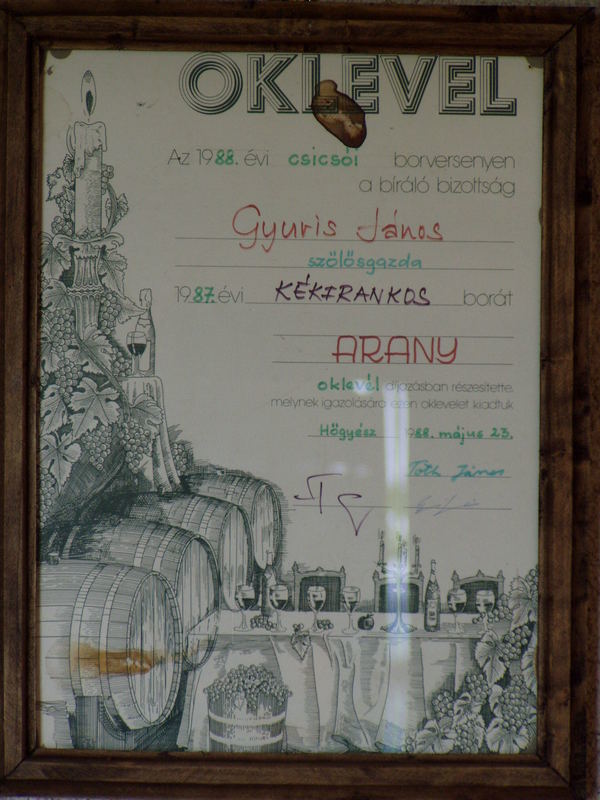 OKLEVÉL
Az 1988. évi csicsói borversenyen
a bíráló bizottság
Gyuris János
szőlősgazda
1987. évi KÉKFRANKOS borát
ARANY
oklevél díjazásban részesítette,
melynek igazolására ezen oklevelet kiadtuk
Hőgyész 1988. május 23.
Tóth János